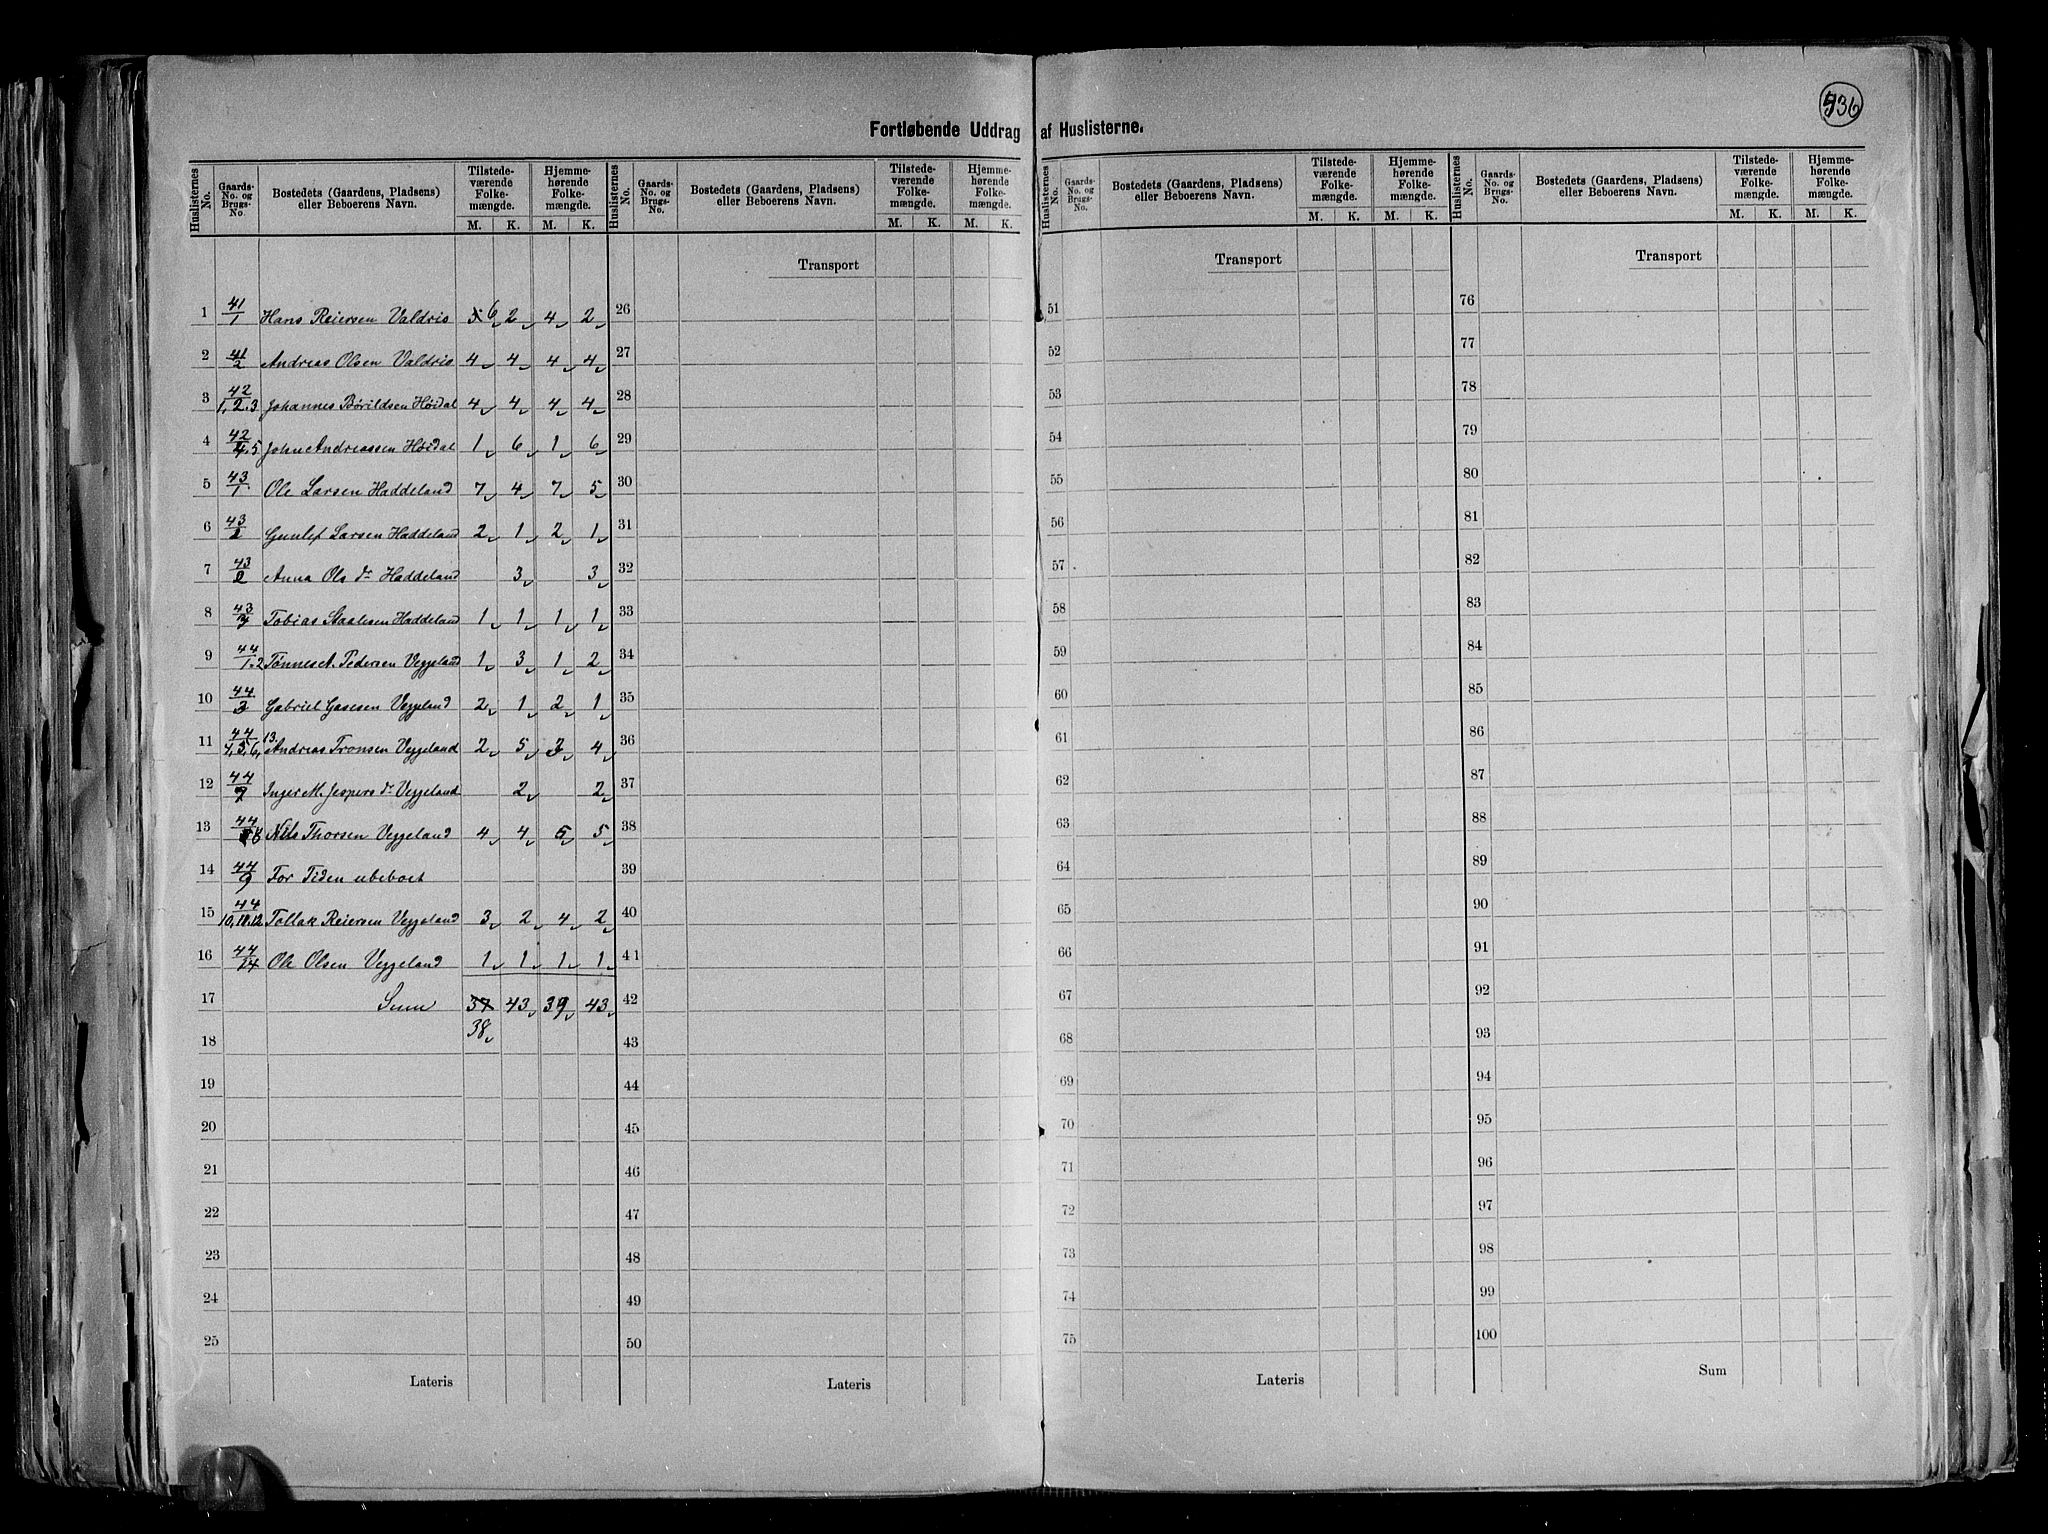 936
Fortløbende Uddrag af Huslisterne.
Huslisternes No. | Gaards-No. og Brugs-No. | Bostedets (Gaardens, Pladsens) eller Beboerens Navn. | Tilstedeværende Folkemængde. M. K. | Hjemmehørende Folkemængde. M. K.
Huslisternes No. | Gaards-No. og Brugs-No. | Bostedets (Gaardens, Pladsens) eller Beboerens Navn. | Tilstedeværende Folkemængde. M. K. | Hjemmehørende Folkemængde. M. K.
Huslisternes No. | Gaards-No. og Brugs-No. | Bostedets (Gaardens, Pladsens) eller Beboerens Navn. | Tilstedeværende Folkemængde. M. K. | Hjemmehørende Folkemængde. M. K.
Huslisternes No. | Gaards-No. og Brugs-No. | Bostedets (Gaardens, Pladsens) eller Beboerens Navn. | Tilstedeværende Folkemængde. M. K. | Hjemmehørende Folkemængde. M. K.
Transport Transport Transport
1 41/1 Hans Reiersen Valdris 5 6 2 4 2 26 51 76
2 41/2 Andreas Olsen Valdris 4 4 4 4 27 52 77
3 42/1,2.3 Johannes Børildsen Höidal 4 4 4 4 28 53 78
4 42/4.5 John Andreassen Höidal 1 6 1 6 29 54 79
5 43/1. Ole Larsen Haddeland 7 4 7 5 30 55 80
6 43/2 Gunlef Larsen Haddeland 2 1 2 1 31 56 81
7 43/2 Anna Ols dr Haddeland 3 3 32 57 82
8 43/4 Tobias Staalesen Haddeland 1 1 1 1 33 58 83
9 44/1.2 Tönnes A. Pedersen Veggeland 1 3 1 2 34 59 84
10 44/3 Gabriel Gasesen Veggeland 2 1 2 1 35 60 85
11 44/4,5,6, 13. Andreas Tronsen Veggeland 2 5 3 4 36 61 86
12 44/7 Inger M. Jespers dr Veggeland 2 2 37 62 87
13 44/8 Nils Thorsen Veggeland 4 4 5 5 38 63 88
14 44/9 For Tiden ubeboet 39 64 89
15 44/10,11.12 Tollak Reiersen Veggeland 3 2 4 2 40 65 90
16 44/14 Ole Olsen Veggeland 1 1 1 1 41 66 91
17 Sum 37 43 39 43 42 67 92
18 38 43 68 93
19 44 69 94
20 45 70 95
21 46 71 96
22 47 72 97
23 48 73 98
24 49 74 99
25 50 75 100
Lateris Lateris Lateris Sum